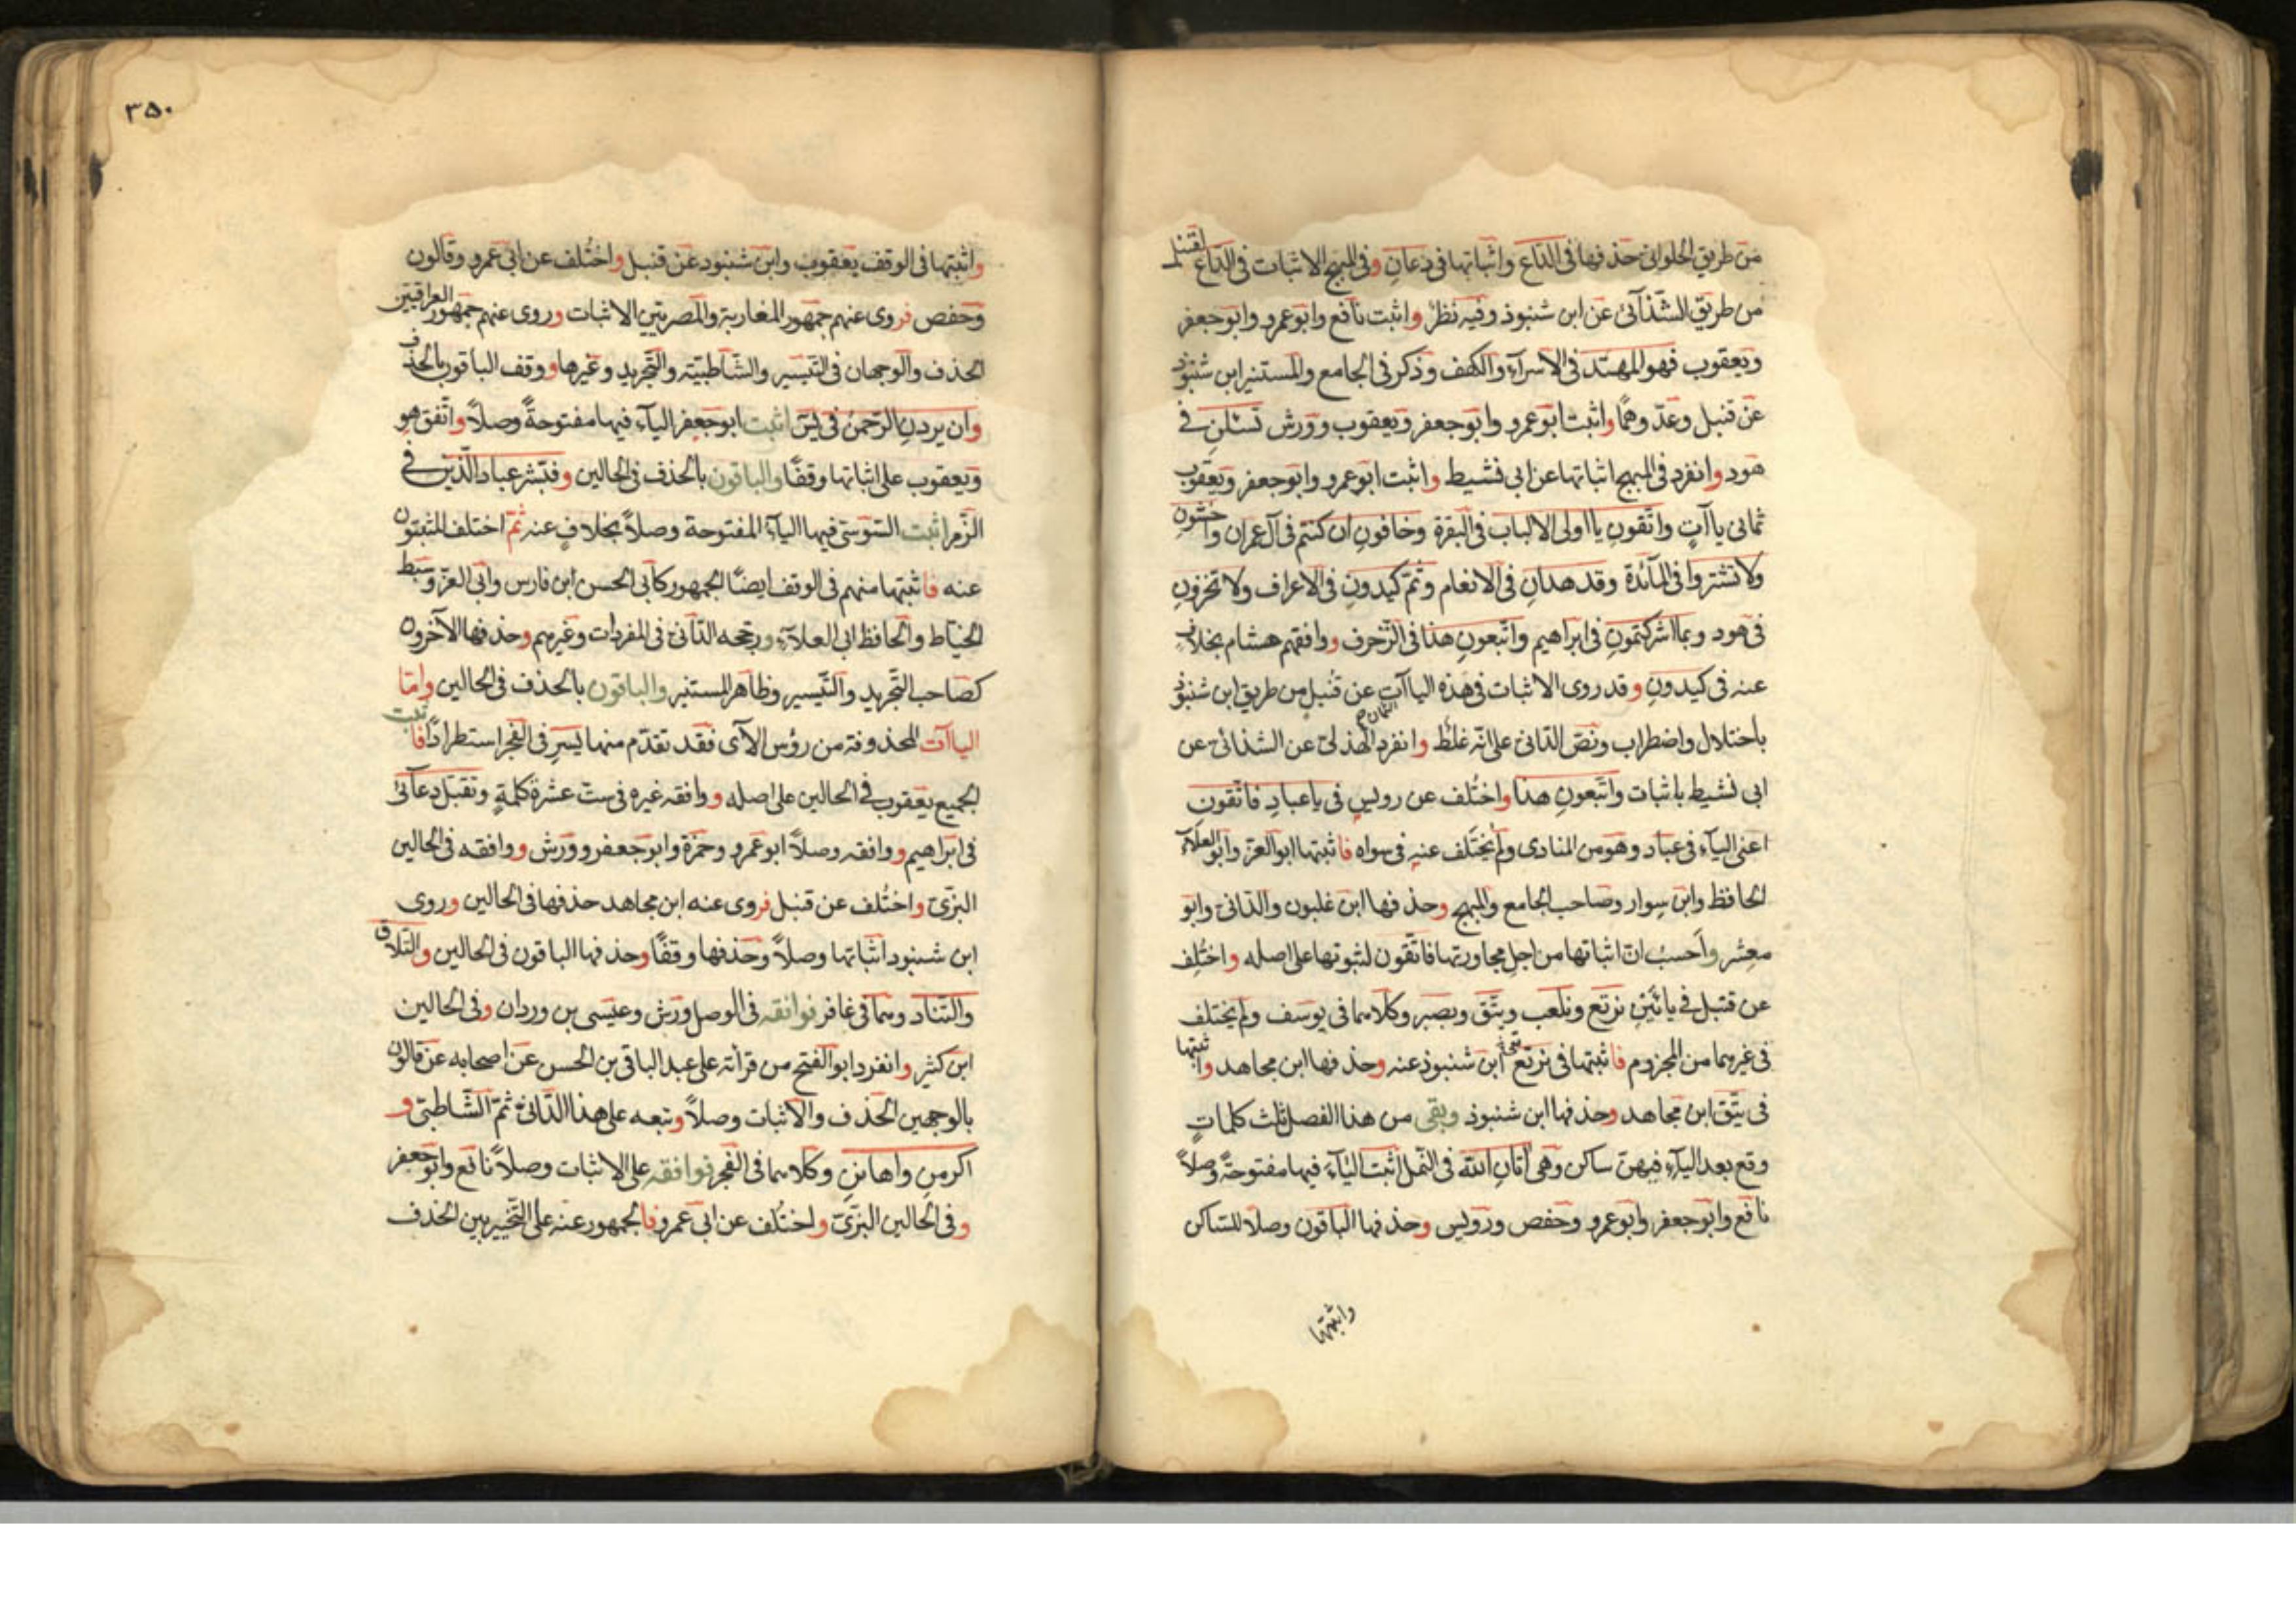 من طريق الحلواني حذفها في الداع واثباتها في دعان وفي المبهج الاثبات في الداع لقنبل
من طريق الشذائي عن ابن شنبوذ وفيه نظر واثبت نافع وابو عمرو وابو جعفر
ويعقوب فهو المهتد في الاسراء والكهف وذكر في الجامع والمستنير ابن شنبوذ
عن قنبل وعد وهما واثبت ابو عمرو وابو جعفر ويعقوب وورش تسئلن في
هود وانفرد في المبهج اثباتها عن ابي نشيط واثبت ابو عمرو وابو جعفر ويعقوب
ثماني ياآت واتقون يا اولى الالباب في البقرة وخافون ان كنتم في آل عمران واخشون
ولا تشتروا في المائدة وقد هدان في الانعام وثم كيدون في الاعراف ولا تخزون
في هود وبما اشركتمون في ابراهيم واتبعون هذا في الزخرف ووافقهم هشام بخلاف
عنه في كيدون وقد روى الاثبات في هذه الياآت الثمان عن قنبل من طريق ابن شنبوذ
باختلال واضطراب ونص الداني على انه غلط وانفرد الهذلي عن الشذائي عن
ابي نشيط باثبات واتبعون هذا واختلف عن رويس في يا عباد فاتقون
اعني الياء في عباد وهو من المنادى ولم يختلف عنه في سواه فاثبتها ابو العز وابو العلاء
الحافظ وابن سوار وصاحب الجامع والمبهج وحذفها ابن غلبون والداني وابو
معشر واحسب ان اثباتها من اجل مجاورتها فاتقون لثبوتها على اصله واختلف
عن قنبل في يائين نرتع ونلعب ويتق ويصبر وكلاهما في يوسف ولم يختلف
في غيرهما من المجزوم فاثبتها في نرتع ابن شنبوذ عنه وحذفها ابن مجاهد واثبتها
في يتق ابن مجاهد وحذفها ابن شنبوذ وبقي من هذا الفصل ثلث كلمات
وقع بعد الياء فيهن ساكن وهي آتان الله في النمل اثبت الياء فيها مفتوحة وصلا
نافع وابو جعفر وابو عمرو وحفص ورويس وحذفها الباقون وصلا للساكن
واثبتها
٣٥٠
واثبتها في الوقف يعقوب وابن شنبوذ عن قنبل واختلف عن ابي عمرو وقالون
وحفص فروى عنهم جمهور المغاربة والمصريين الاثبات وروى عنهم جمهور العراقيين
الحذف والوجهان في التيسير والشاطبية والتجريد وغيرها ووقف الباقون بالحذف
وان يردن الرحمن في يس اثبت ابو جعفر الياء فيها مفتوحة وصلا واتفق هو
ويعقوب على اثباتها وقفا والباقون بالحذف في الحالين وفبشر عباد الذين في
الزمر اثبت السوسي فيها الياء المفتوحة وصلا بخلاف عنه ثم اختلف المثبتون
عنه فاثبتها منهم في الوقف ايضا الجمهور كابي الحسن ابن فارس وابي العز وسبط
الخياط والحافظ ابي العلاء ورجحه الداني في المفردات وغيرهم وحذفها الآخرون
كصاحب التجريد والتيسير وظاهر المستنير والباقون بالحذف في الحالين واما
الياآت المحذوفة من رؤس الآى فقد تقدم منها يسر في الفجر استطرادا فاثبت
الجميع يعقوب في الحالين على اصله ووافقه غيره في ست عشرة كلمة وتقبل دعائي
في ابراهيم ووافقه وصلا ابو عمرو وحمزة وابو جعفر وورش ووافقه في الحالين
البزي واختلف عن قنبل فروى عنه ابن مجاهد حذفها في الحالين وروى
ابن شنبوذ اثباتها وصلا وحذفها وقفا وحذفها الباقون في الحالين والتلاق
والتناد وهما في غافر فوافقه في الوصل ورش وعيسى بن وردان وفي الحالين
ابن كثير وانفرد ابو الفتح من قرأته على عبد الباقي بن الحسن عن اصحابه عن قالون
بالوجهين الحذف والاثبات وصلا وتبعه على هذا الداني ثم الشاطبي و
اكرمن واهانن وكلاهما في الفجر فوافقه على الاثبات وصلا نافع وابو جعفر
وفي الحالين البزي واختلف عن ابي عمرو فالجمهور عنه على التخيير بين الحذف